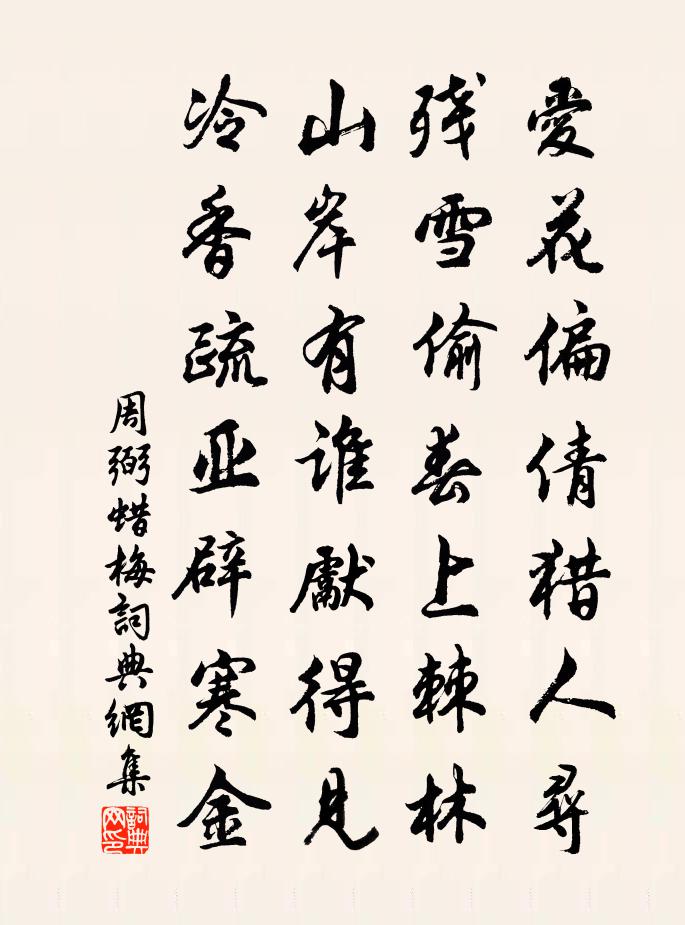 愛花偏倩猎人尋
残雪偷春上棘林
山岸有谁獻得見
冷香疏亚辟寒金
周弼蜡梅詞典網集
詞典网印